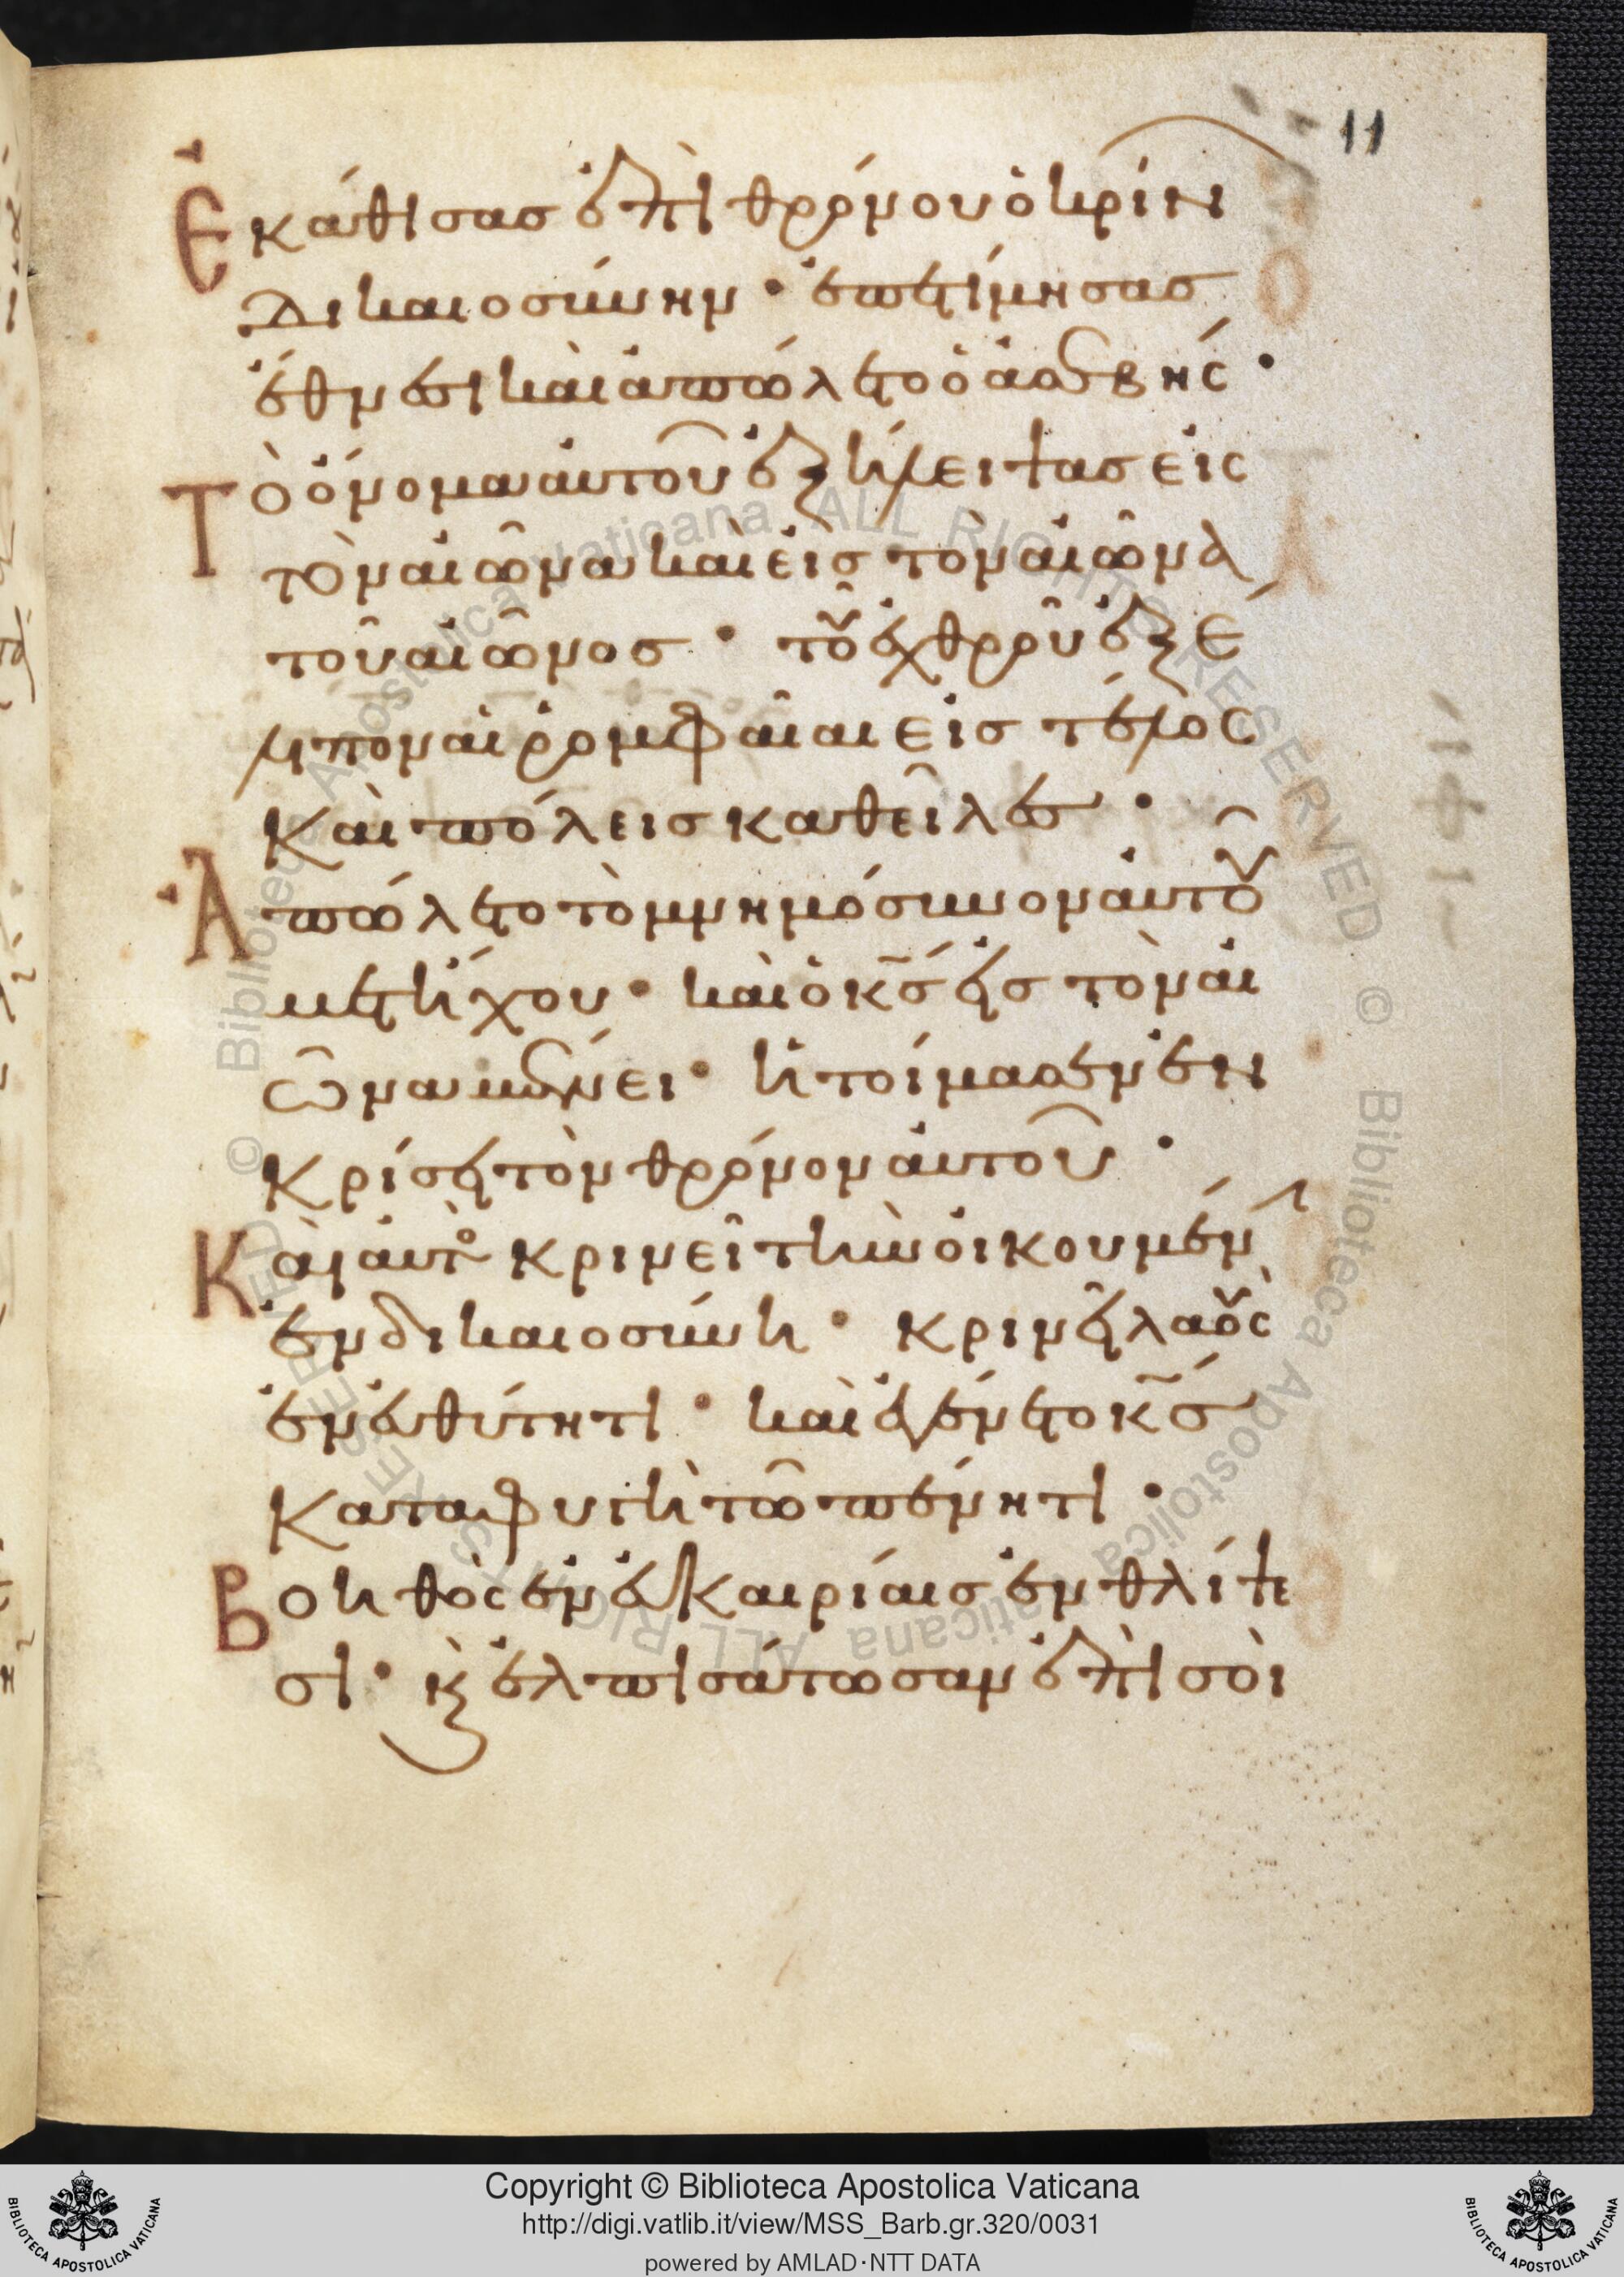 11
Ἐκάθισας ἐπὶ θρόνου ὁ κρίν(ων)
δικαιοσύνην · ἐπετίμησας
ἔθνεσι καὶ ἀπώλετο ὁ ἀσεβής ·
Τὸ ὄνομα αὐτοῦ ἐξήλειψας εἰς
τὸν αἰῶνα καὶ εἰς τὸν αἰῶνα
τοῦ αἰῶνος · τοῦ ἐχθροῦ ἐξέ
λιπον αἱ ῥομφαῖαι εἰς τέλος
καὶ πόλεις καθεῖλες ·
Ἀπώλετο τὸ μνημόσυνον αὐτοῦ
μετ ἤχου · καὶ ὁ κ̅ς̅ εἰς τὸν αἰ
ῶνα μένει · ἡτοίμασεν ἐν
κρίσει τὸν θρόνον αὐτοῦ ·
Καὶ αὐτὸς κρινεῖ τὴν οἰκουμέν(ην)
ἐν δικαιοσύνη · κρινεῖ λαοὺς
ἐν εὐθύτητι · καὶ ἐγένετο κ̅ς̅
καταφυγὴ τῶ πένητι ·
Βοηθὸς ἐν εὐκαιρίαις ἐν θλίψε
σι · κ(αὶ) ἐλπισάτωσαν ἐπὶ σοὶ
Copyright © Biblioteca Apostolica Vaticana
http://digi.vatlib.it/view/MSS_Barb.gr.320/0031
powered by AMLAD·NTT DATA
BIBLIOTECA APOSTOLICA VATICANA
BIBLIOTECA APOSTOLICA VATICANA
© Biblioteca Apostolica Vaticana ALL RIGHTS RESERVED © Biblioteca Apostolica Vaticana ALL RIGHTS RESERVED